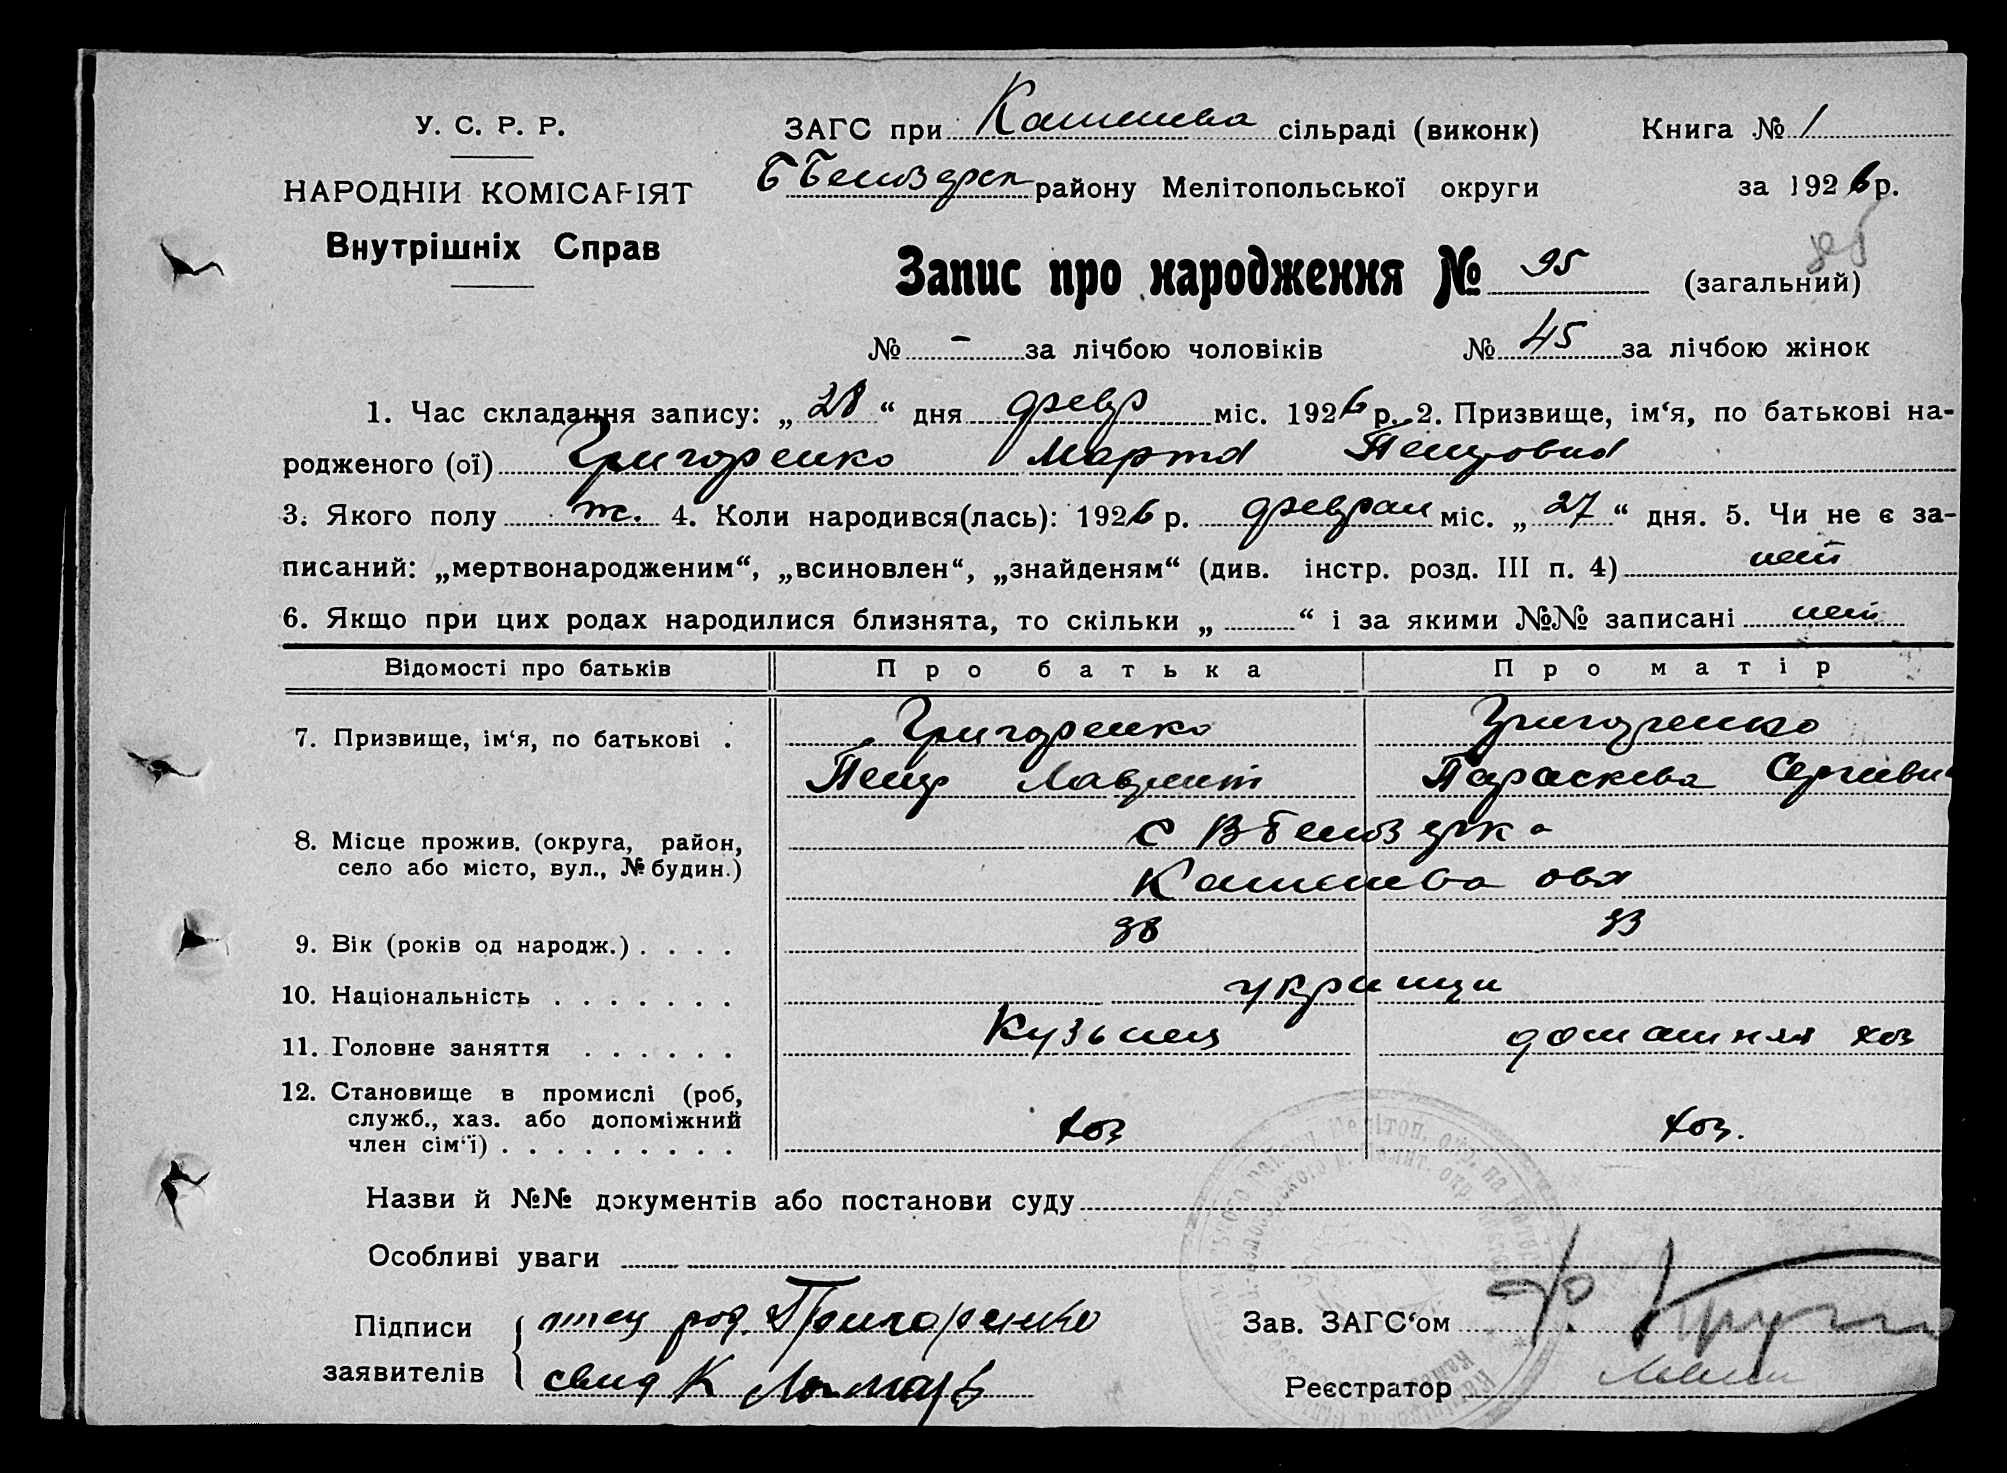 У. С. Р. Р.
НАРОДНІЙ КОМІСАРІЯТ
Внутрішніх Справ
ЗАГС при сільраді (виконк)
Книга № 1
району Мелітопольської округи
за 1926 р.
Запис про народження № 95 (загальний)
№ - за лічбою чоловіків № 45 за лічбою жінок
1. Час складання запису: „ 28 “ дня февр міс. 1926 р. 2. Призвище, ім‘я, по батькові на-
родженого (ої) Григоренко Марта Петровна
3. Якого полу ж. 4. Коли народився(лась): 1926 р. феврал міс. „ 27 “ дня. 5. Чи не є за-
писаний: „мертвонародженим“, „всиновлен“, „знайденям“ (див. інстр. розд. III п. 4) нет
6. Якщо при цих родах народилися близнята, то скільки „ “ і за якими №№ записані нет
Відомості про батьків Про батька Про матір
7. Призвище, ім‘я, по батькові . Григоренко Григоренко
Петр Лаврент Параскева Сергеевн
8. Місце прожив. (округа, район,
село або місто, вул., № будин.)
9. Вік (років од народж.) . . . . 38 33
10. Національність . . . . . . . украинци
11. Головне заняття . . . . . . Кузьнец домашняя хоз
12. Становище в промислі (роб,
служб., хаз. або допоміжний
член сім‘ї) . . . . . . . . . хоз хоз.
Назви й №№ документів або постанови суду
Особливі уваги
Підписи
заявителів
отец род. Григоренко
свид К
Зав. ЗАГС‘ом
Реєстратор